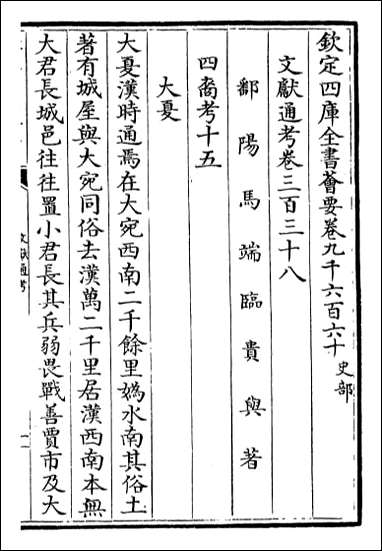 欽定四庫全書薈要卷九千六百六十 史部
文獻通考卷三百三十八
鄱陽馬端臨貴與著
四裔考十五
大夏
大夏漢時通焉在大宛西南二千餘里媯水南其俗土
著有城屋與大宛同俗去漢萬二千里居漢西南本無
大君長城邑往往置小君長其兵弱畏戰善賈市及大
文獻通考